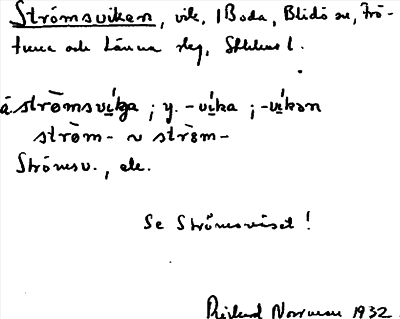 Strömsviken, vik, i Boda, Blidö sn, Frö-
tuna och Länna skg, Sthlms l.
å strömsvíka ; y. -víka ; -víkən
ström- ~ ström-
Strömsv., ek.
Se Strömsnäset !
Rickard Norrman 1932.